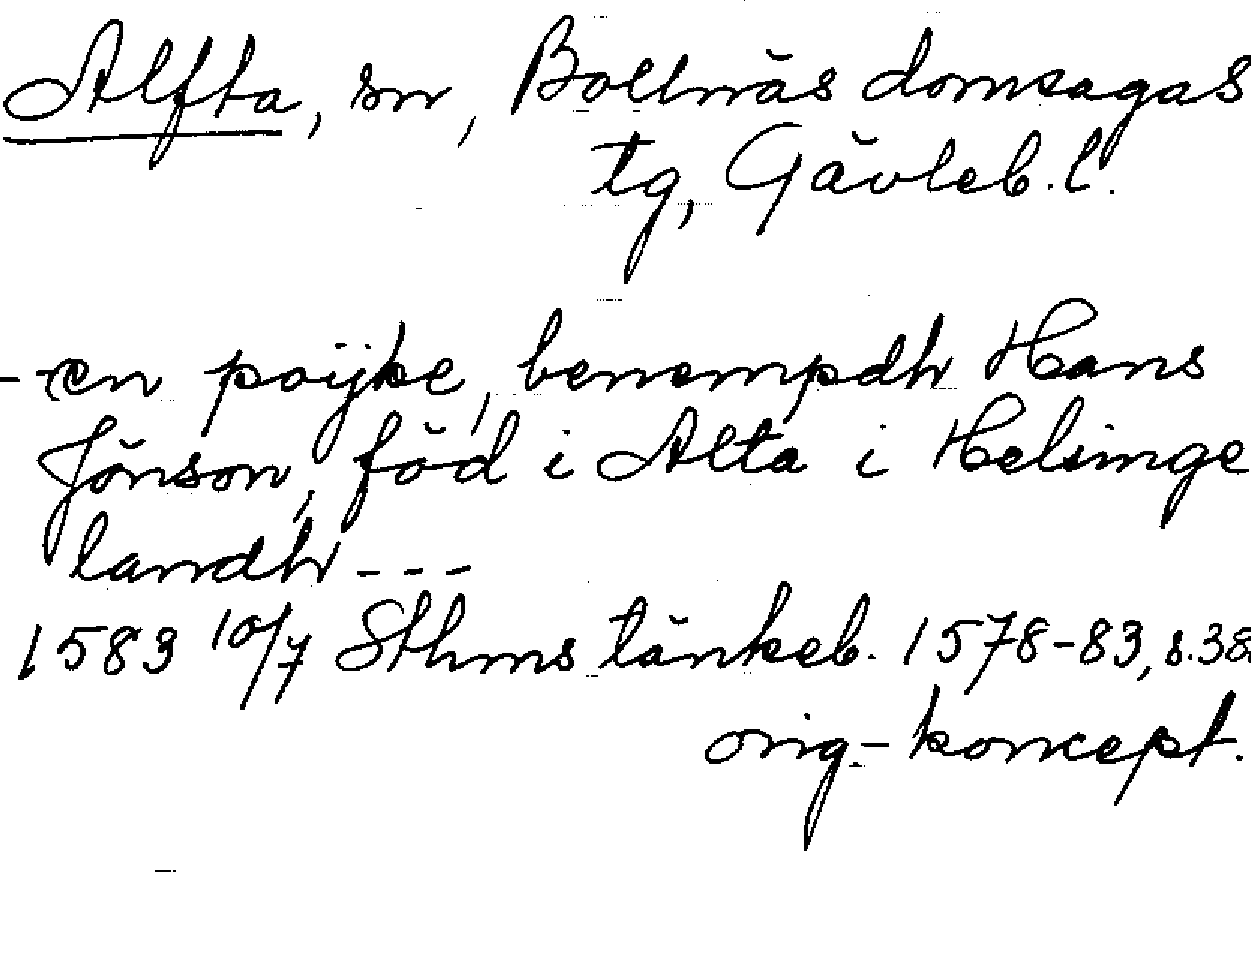 Alfta, sn, Bollnäs domsagas
tg, Gävleb. l.
- en poijke, benempdh Hans
Jönson, föd i Alta i Helsinge
landh ---
1583 10/7 Sthms tänkeb. 1578-83, s.38
orig-koncept.